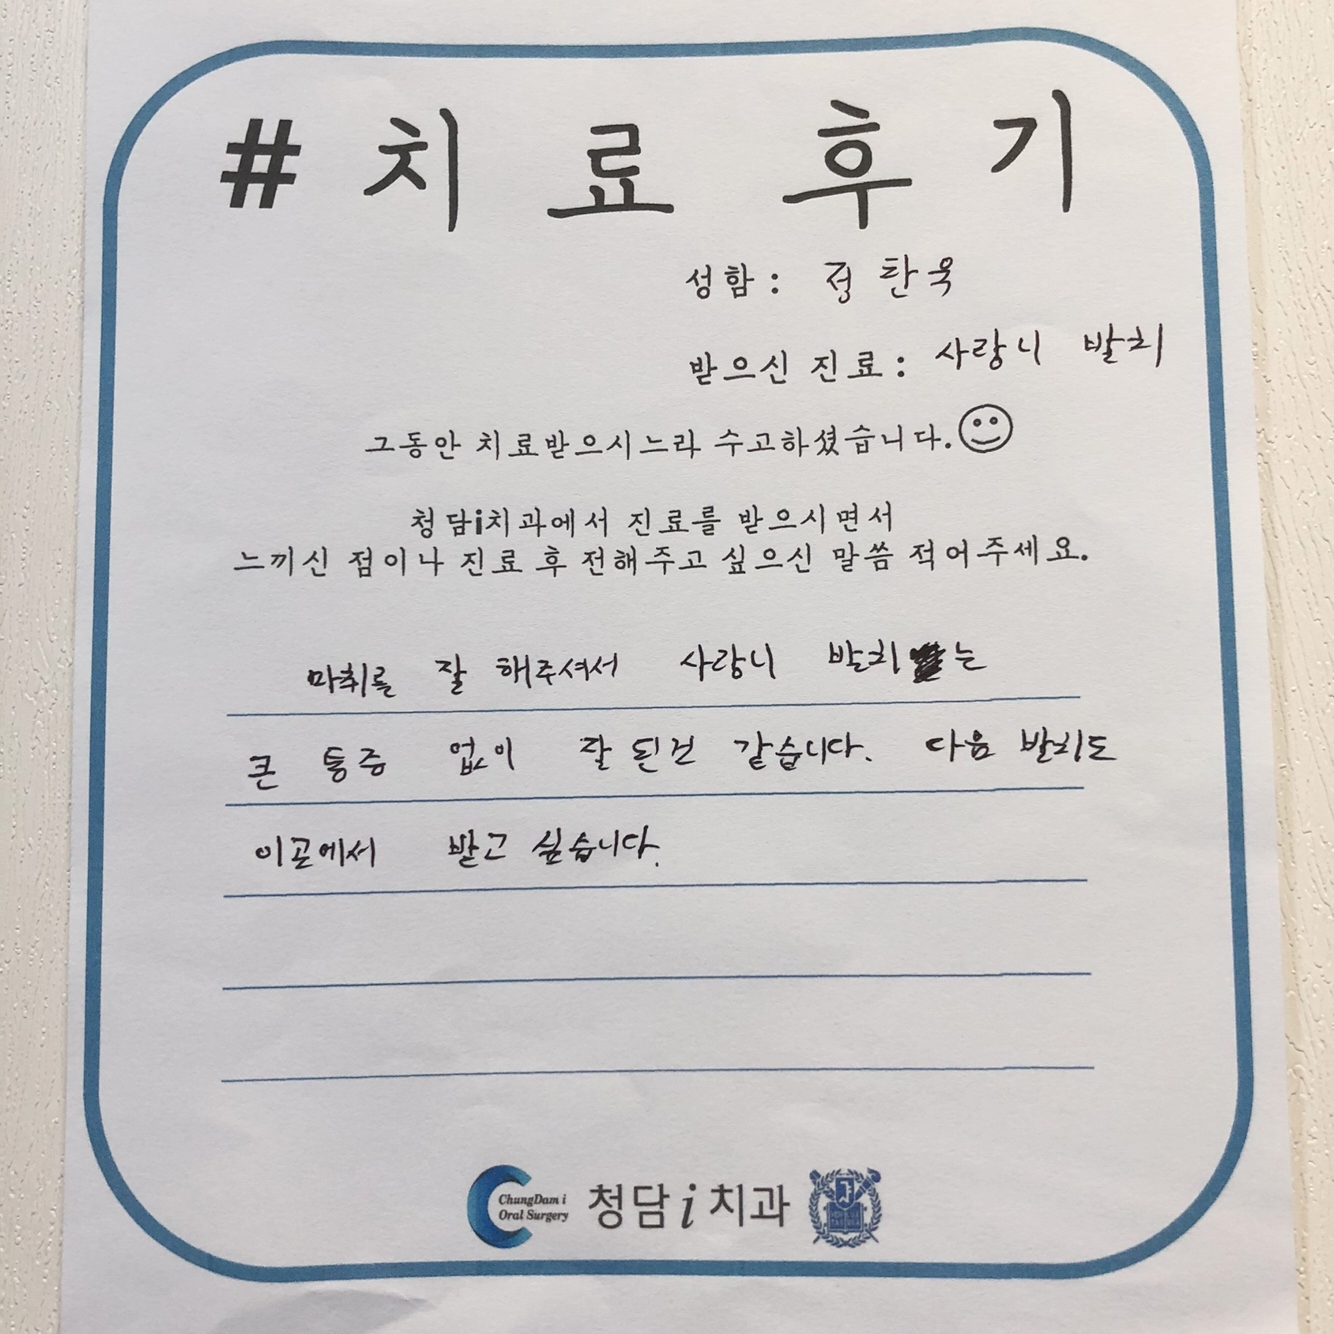 # 치 료 후 기
성함 : 정 탄 욱
받으신 진료 : 사랑니 발치
그동안 치료받으시느라 수고하셨습니다.
청담i치과에서 진료를 받으시면서
느끼신 점이나 진료 후 전해주고 싶으신 말씀 적어주세요.
마취를 잘 해주셔서 사랑니 발치는
큰 통증 없이 잘 된건 같습니다. 다음 발치도
이곳에서 받고 싶습니다.
ChungDam i
Oral Surgery
청담 i 치과